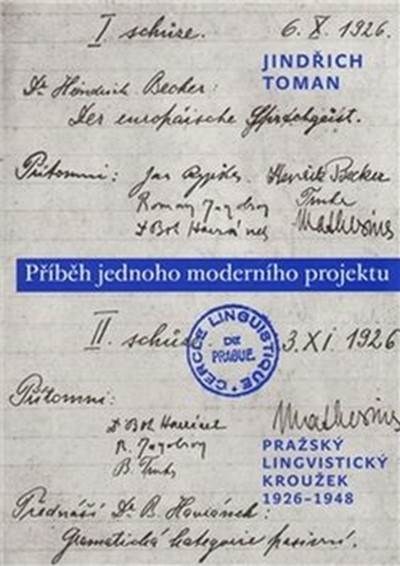 I schůze. 6. X. 1926.
JINDŘICH
TOMAN
Dr Heindrich Becker:
Der europäische Sprachgeist.
Přítomni: Jan Rypka Henrik Becker
Trnka
Mathesius
Dr Boh Havránek
Příběh jednoho moderního projektu
II schůze. 3. XI. 1926
CERCLE LINGUISTIQUE
DE
PRAGUE
Přítomni:
Dr Boh Havránek
Mathesius
B. Trnka
PRAŽSKÝ
LINGVISTICKÝ
KROUŽEK
1926–1948
Přednáší Dr. B. Havránek:
Gramatická kategorie pasivní.